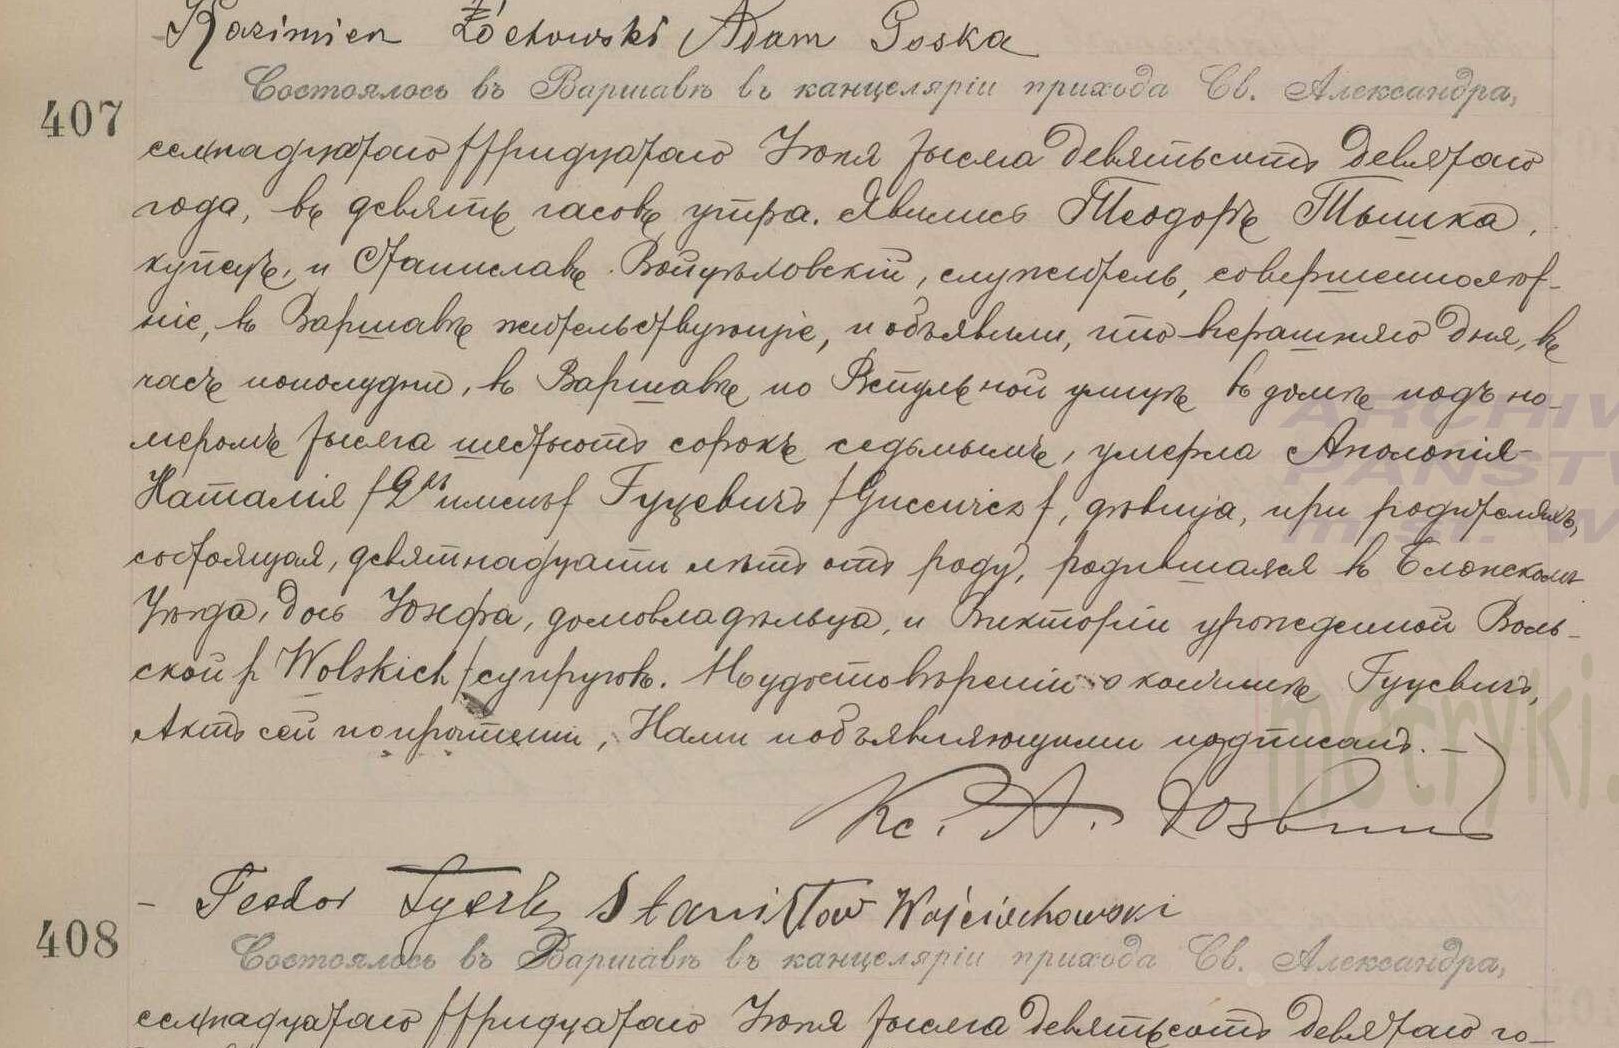 Kazimierz Żochowski Adam Poska
407
Состоялось въ Варшавѣ въ канцеляріи прихода Св. Александра,
семнадцатаго /тридцатаго Іюня тысяча девятьсотъ девятаго
года, въ девять часовъ утра. Явились Теодоръ Тышка,
купецъ, и Станиславъ Войцѣховскій, служитель, совершеннолѣт-
ніе, въ Варшавѣ жительствующіе, и объявили, что вчерашняго дня, въ
часъ пополудни, въ Варшавѣ по Вспульной улицѣ въ домѣ подъ но-
меромъ тысяча шестьсотъ сорокъ седьмымъ, умерла Аполонія-
Наталія /2хъ именъ/ Гуцевичъ /Guccewicz/, дѣвица, при родителяхъ
состоящая, девятнадцати лѣтъ отъ роду, родившаяся въ Блонскомъ
Уѣзда, дочь Іосифа, домовладѣльца, и Викторіи урожденной Воль-
ской /z Wolskich/ супруговъ. По удостовѣреніи о кончинѣ Гуцевичъ,
Актъ сей по прочтеніи, Нами и объявляющими подписанъ. –
Кс. А.
– Teodor Stanisław Wojciechowski
408
Состоялось въ Варшавѣ въ канцеляріи прихода Св. Александра,
семнадцатаго /тридцатаго Іюня тысяча девятьсотъ девятаго го-
ARCHIW
PAŃSTW
m.st. W
metryki.